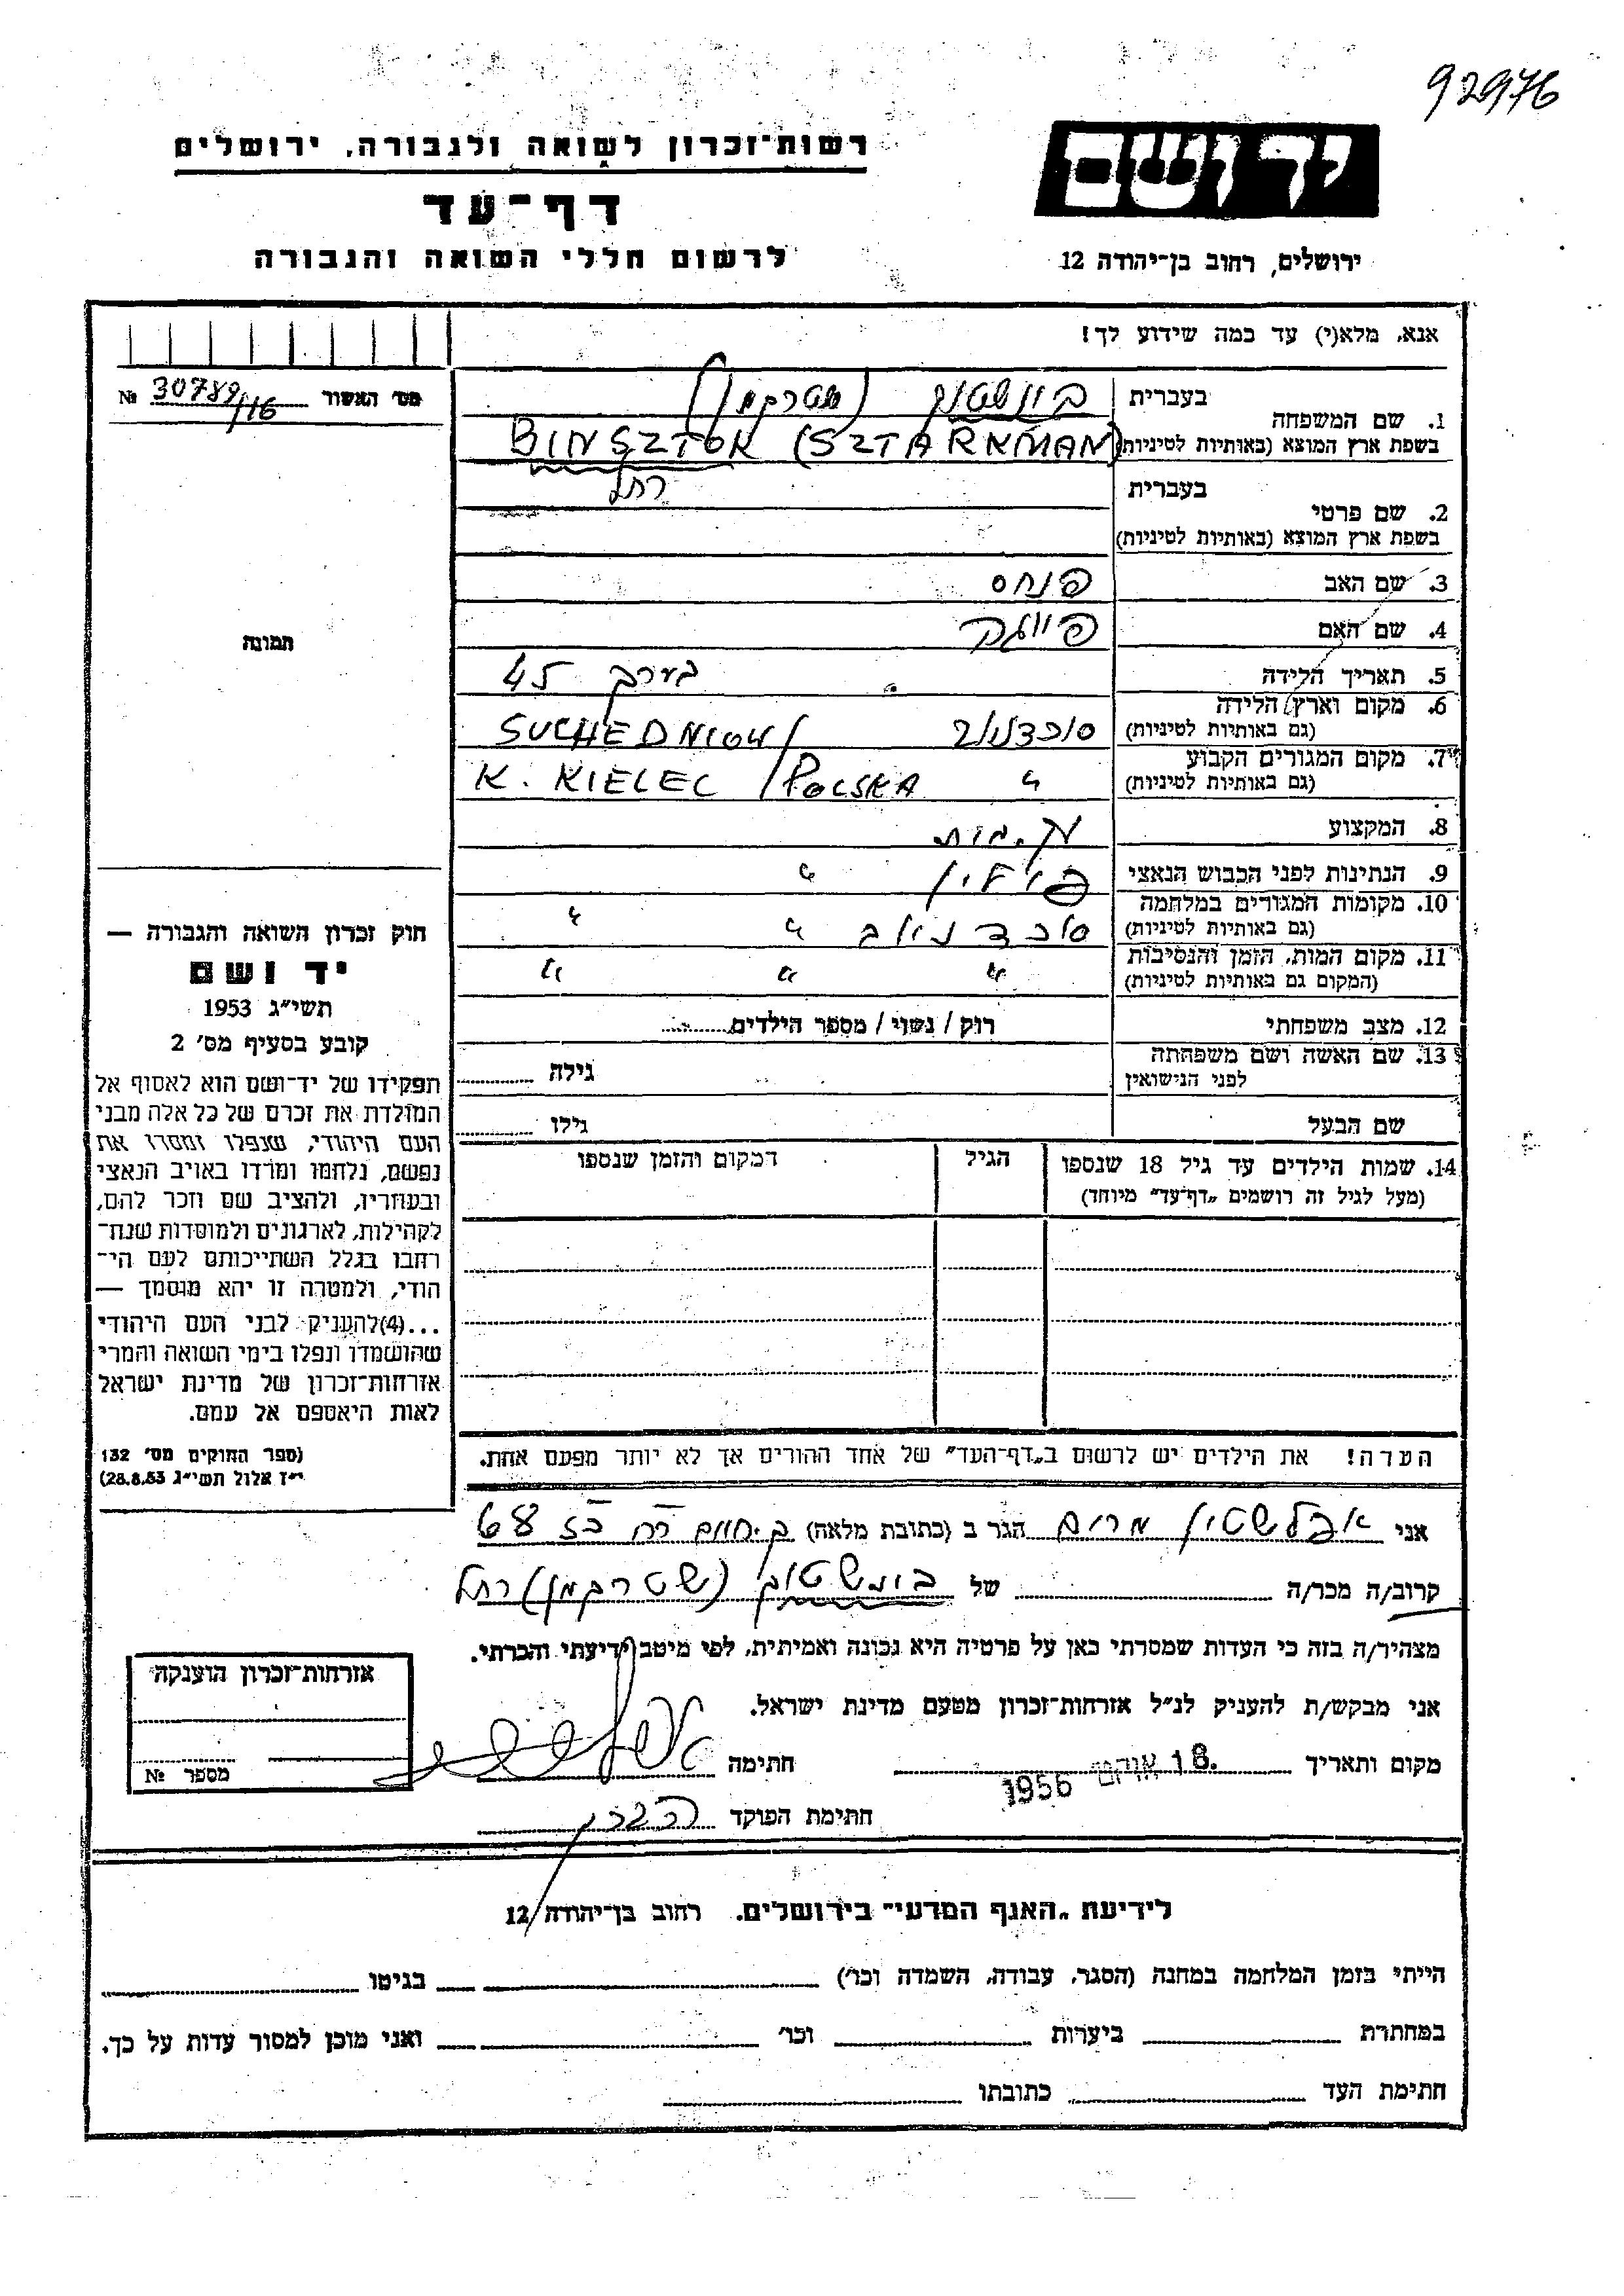 92976
ידושם
רשות־זכרון לשואה ולגבורה, ירושלים
דף־עד
לרשום חללי השואה והגבורה
ירושלים, רחוב בן־יהודה 12
אנא, מלא(י) עד כמה שידוע לך!
מס׳ האשור № 30789/16
1. שם המשפחה בעברית בינשטוק (שטרקמן)
בשפת ארץ המוצא (באותיות לטיניות) BINSZTOK (SZTARKMAN)
2. שם פרטי בעברית רחל
בשפת ארץ המוצא (באותיות לטיניות)
3. שם האב פנחס
4. שם האם פייגה
5. תאריך הלידה בערך 45
6. מקום וארץ הלידה סוכדניוב SUCHEDNIOW/
(גם באותיות לטיניות)
7. מקום המגורים הקבוע " K. KIELEC / POLSKA
(גם באותיות לטיניות)
8. המקצוע עק. בית
9. הנתינות לפני הכבוש הנאצי פולין "
10. מקומות המגורים במלחמה סוכדניוב " "
(גם באותיות לטיניות)
11. מקום המות, הזמן והנסיבות " " "
(המקום גם באותיות לטיניות)
12. מצב משפחתי רוק / נשוי / מספר הילדים
13. שם האשה ושם משפחתה לפני הנישואין גילה
שם הבעל גילו
14. שמות הילדים עד גיל 18 שנספו הגיל המקום והזמן שנספו
(מעל לגיל זה רושמים „דף־עד” מיוחד)
הערה! את הילדים יש לרשום ב„דף־העד” של אחד ההורים אך לא יותר מפעם אחת.
תמונה
חוק זכרון השואה והגבורה —
יד ושם
תשי״ג 1953
קובע בסעיף מס׳ 2
תפקידו של יד־ושם הוא לאסוף אל
המולדת את זכרם של כל אלה מבני
העם היהודי, שנפלו ומסרו את
נפשם, נלחמו ומרדו באויב הנאצי
ובעוזריו, ולהציב שם וזכר להם,
לקהילות, לארגונים ולמוסדות שנח־
רבו בגלל השתייכותם לעם הי־
הודי, ולמטרה זו יהא מוסמך —
...(4)להעניק לבני העם היהודי
שהושמדו ונפלו בימי השואה והמרי
אזרחות־זכרון של מדינת ישראל
לאות היאספם אל עמם.
(ספר החוקים מס׳ 132
י״ז אלול תשי״ג 28.8.53)
אני אפלשטין מרים הגר ב (כתובת מלאה) 68
קרוב/ה מכר/ה של בינשטוק (שטרקמן) רחל
מצהיר/ה בזה כי העדות שמסרתי כאן על פרטיה היא נכונה ואמיתית, לפי מיטב ידיעתי והכרתי.
אני מבקש/ת להעניק לנ״ל אזרחות־זכרון מטעם מדינת ישראל.
מקום ותאריך 18. 1956 חתימה
חתימת הפוקד
אזרחות־זכרון הוענקה
מספר №
לידיעת „האגף המדעי” בירושלים, רחוב בן־יהודה 12
הייתי בזמן המלחמה במחנה (הסגר, עבודה, השמדה וכו׳) בגיטו
במחתרת ביערות וכו׳ ואני מוכן למסור עדות על כך.
חתימת העד כתובתו